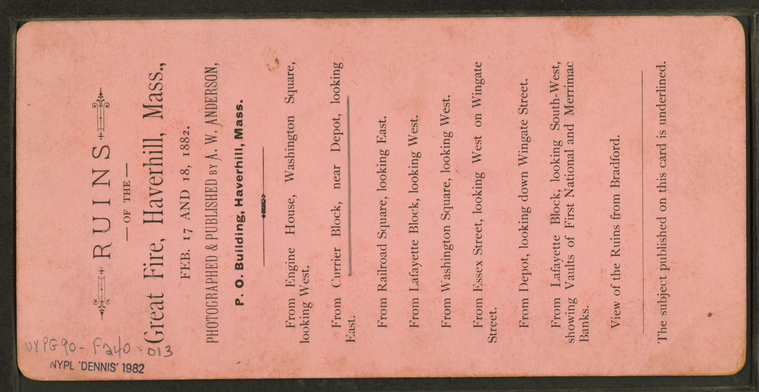 RUINS
— OF THE —
Great Fire, Haverhill, Mass.,
FEB. 17 AND 18, 1882.
PHOTOGRAPHED & PUBLISHED BY A. W. ANDERSON,
P. O. Building, Haverhill, Mass.
From Engine House, Washington Square,
looking West.
From Currier Block, near Depot, looking
East.
From Railroad Square, looking East.
From Lafayette Block, looking West.
From Washington Square, looking West.
From Essex Street, looking West on Wingate
Street.
From Depot, looking down Wingate Street.
From Lafayette Block, looking South-West,
showing Vaults of First National and Merrimac
Banks.
View of the Ruins from Bradford.
The subject published on this card is underlined.
NYPG90-F240-013
NYPL 'DENNIS' 1982